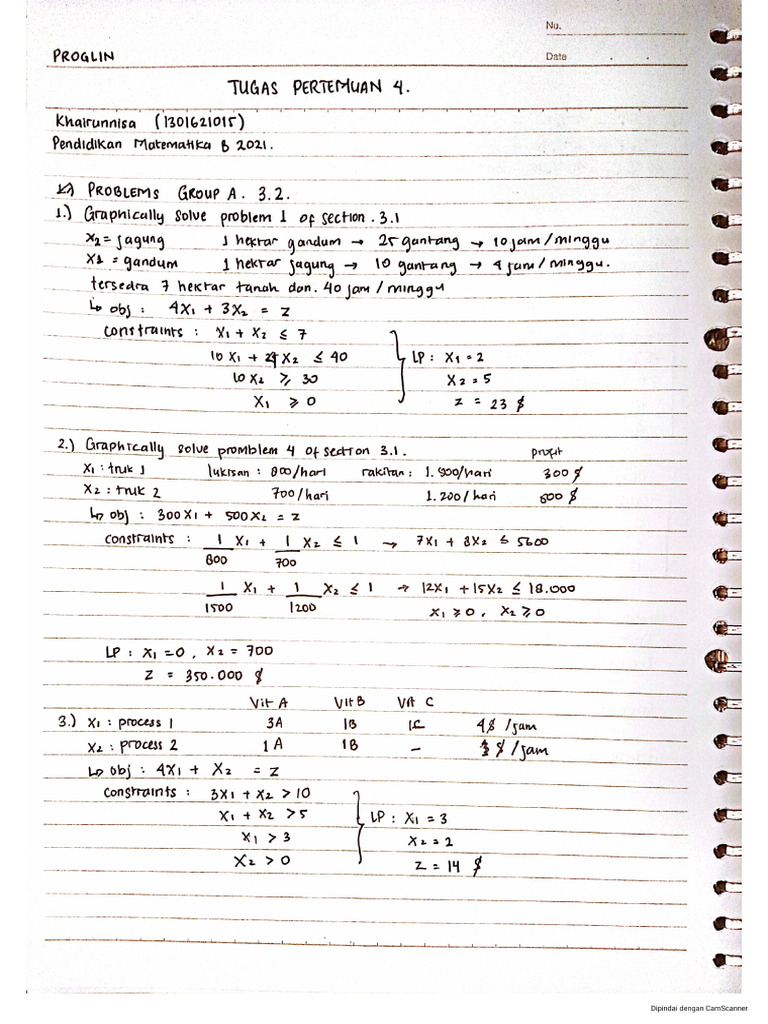 No.
PROGLIN
Date . .
TUGAS PERTEMUAN 4.
Khairunnisa (1301621015)
Pendidikan Matematika B 2021.
PROBLEMS GROUP A. 3.2.
1.) Graphically solve problem 1 of section. 3.1
X2 = jagung 1 hektar gandum → 25 gantang → 10 jam / minggu
X1 = gandum 1 hektar jagung → 10 gantang → 4 jam / minggu.
tersedra 7 hektar tanah dan. 40 jam / minggu
↳ obj : 4X1 + 3X2 = z
constraints : X1 + X2 ≤ 7
10 X1 + 4 X2 ≤ 40 LP : X1 = 2
10 X2 ≥ 30 X2 = 5
X1 ≥ 0 Z = 23 $
2.) Graphically solve promblem 4 of section 3.1. profit
X1 : truk 1 lukisan : 800/hari rakitan : 1.500/hari 300 $
X2 : truk 2 700/hari 1.200/hari 500 $
↳ obj : 300X1 + 500X2 = z
constraints : 1/800 X1 + 1/700 X2 ≤ 1 → 7X1 + 8X2 ≤ 5600
1/1500 X1 + 1/1200 X2 ≤ 1 → 12X1 + 15X2 ≤ 18.000
X1 ≥ 0, X2 ≥ 0
LP : X1 = 0, X2 = 700
Z = 350.000 $
Vit A Vit B Vit C
3.) X1 : process 1 3A 1B 1C 4$ /jam
X2 : process 2 1A 1B - $ /jam
↳ obj : 4X1 + X2 = z
constraints : 3X1 + X2 > 10
X1 + X2 > 5 LP : X1 = 3
X1 > 3 X2 = 2
X2 > 0 Z = 14 $
Dipindai dengan CamScanner